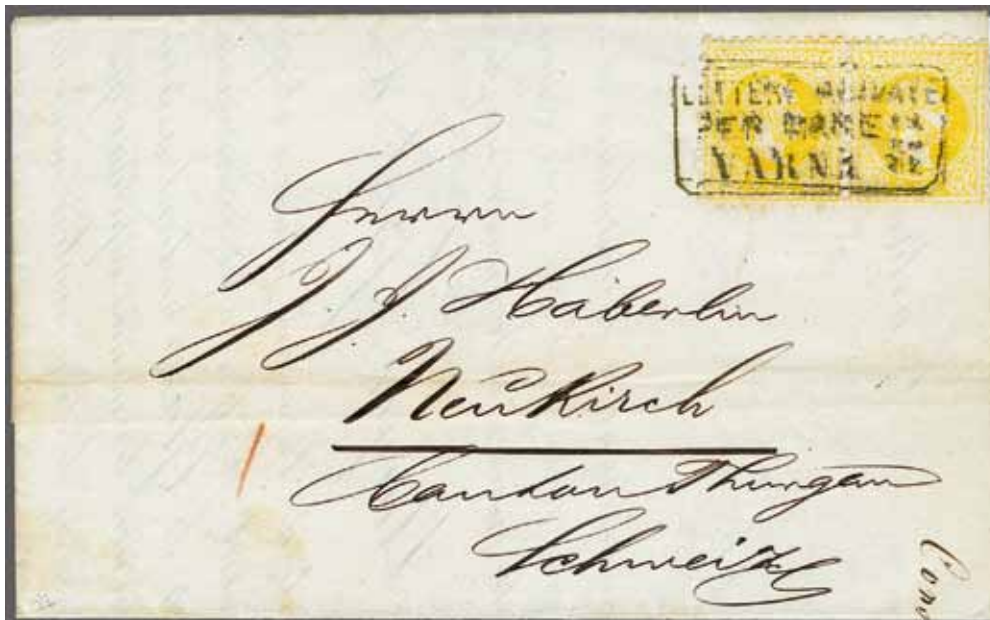 LETTERE ARRIVATE
PER MARE
VARNA
Herrn
J. J. Häberlin
Neukirch
Canton Thurgau
Schweiz